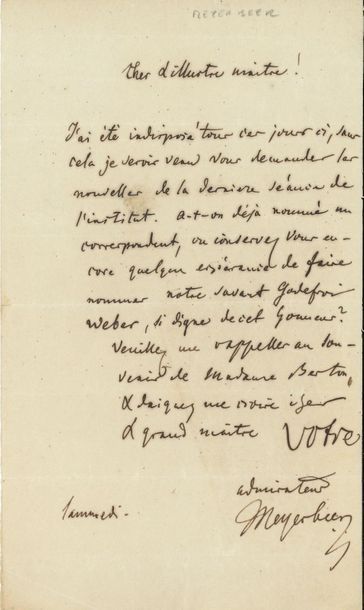 MEYERBEER
Cher & illustre maitre !
J'ai été indisposé tour ces jours ci, sans
cela je serois venu vous demander les
nouvelles de la derniere séance de
l'institut. A-t-on déjà nommé un
correspondent, ou conservez vous en-
core quelque espérance de faire
nommer notre savant Godefroi
Weber, si digne de cet honneur?
Veuillez me rappeller au sou-
venir de Madame Berton,
& daignez me croire cher
& grand maitre Votre
admirateur
Meyerbeer
Sammedi.